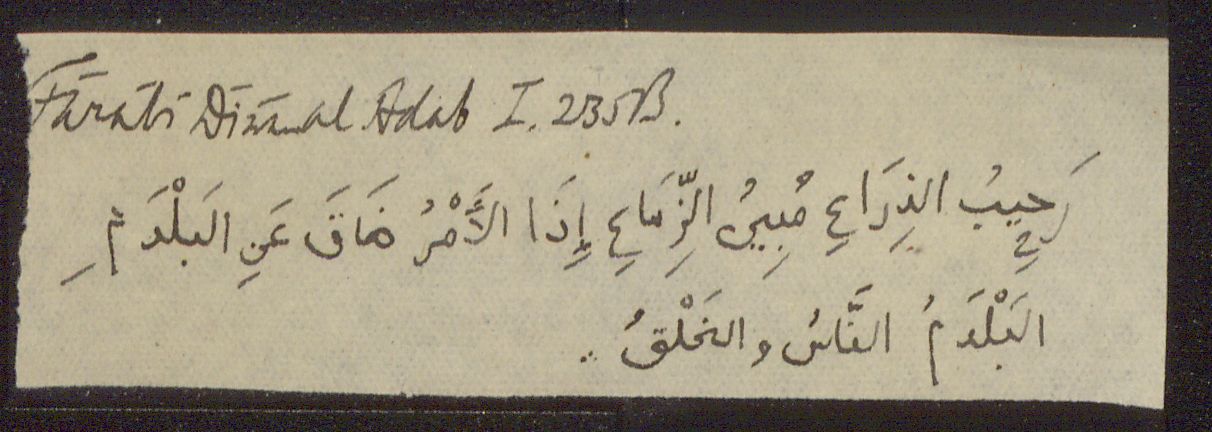 Fārābī Dīwān al Adab I. 235B.
رَحِيبُ الذِرَاعِ مُبِينُ الزِّمَاعِ إِذَا الأَمْرُ ضَاقَ عَنِ البَلْدَمِ
البَلْدَمُ النَّاسُ والخَلْقُ ..